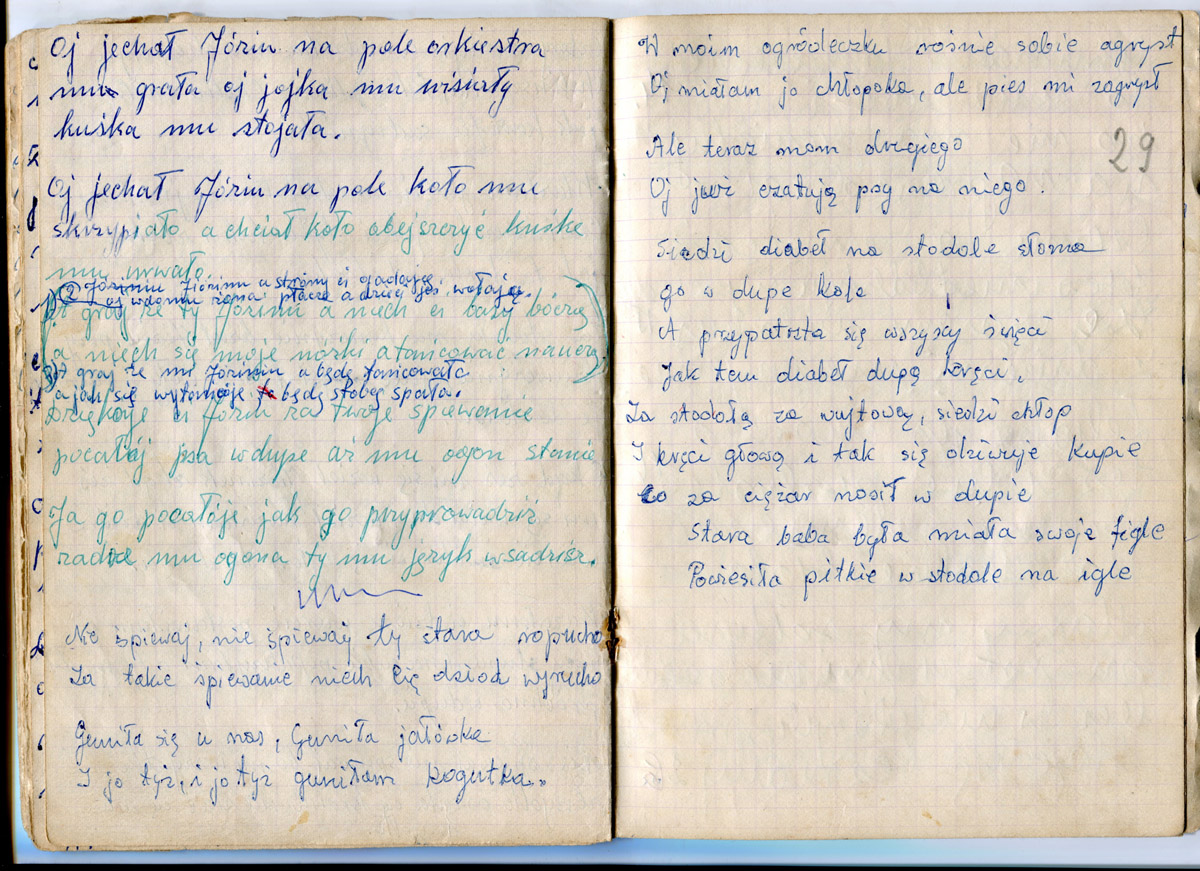 Oj jechał Józiu na pole orkiestra
mu grała oj jojka mu wisiały
kuśka mu stojała.
Oj jechał Józiu na pole koło mu
skrzypiało a chciał koło obejszczyć kuśke
mu urwało.
② Józiniu Józiniu u strony ci gadają
oj wdomu żona płacze a dzieci joś wołają.
graj że ty Józiniu a niech ci basy bóczą
a niech się moje nóżki atańcować nauczą
3) A graj że mi Józiniu a będe tańcowała
a jak się wytańcóje to będe stobą spała.
Dziękóje ci Józiu za twoje śpiewanie
pocałój psa wdupe aż mu ogon stanie
Ja go pocałóje jak go przyprowadziż
zadre mu ogona ty mu język wsadziśz.
Nie śpiewaj, nie śpiewaj ty stara ropucho
Za takie śpiewanie niech Cię dziod wyrucho
Guniła się u nos, Guniła jałówka
I jo tyż, i jo tyż guniłam kogutka.
W moim ogródeczku rośnie sobie agryst
Oj miałam jo chłopoka, ale pies mi zagryzł
29
Ale teraz mom drugiego
Oj juvż czatują psy na niego.
Siedzi diabeł na stodole słoma
go w dupe kole
A przypatrzta się wszyscy święci
Jak ten diabeł dupą kręci.
Za stodołą za wujtową, siedzi chłop
I kręci głową i tak się dziwuje kupie
Co za ciężar nosił w dupie
Stara baba była miała swoje figle
Powiesiła pitkie w stodole na igle